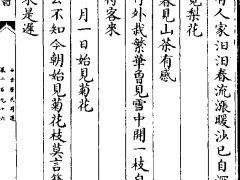 有人家汩汩春流漲暖沙已自深
見梨花
春見山茶有感
外栽繁華曾見雪中開一枝
待客來
月一日始見菊花
不知今朝始見菊花枝莫言
是遲
卷二百九十六